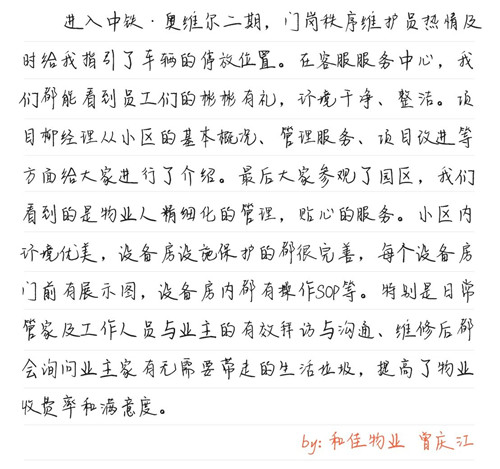 进入中铁·奥维尔二期，门岗秩序维护员热情及
时给我指引了车辆的停放位置。在客服服务中心，我
们都能看到员工们的彬彬有礼，环境干净、整洁。项
目柳经理从小区的基本概况、管理服务、项目改进等
方面给大家进行了介绍。最后大家参观了园区，我们
看到的是物业人精细化的管理，贴心的服务。小区内
环境优美，设备房设施保护的都很完善，每个设备房
门前有展示图，设备房内都有操作SOP等。特别是日常
管家及工作人员与业主的有效拜访与沟通、维修后都
会询问业主家有无需要带走的生活垃圾，提高了物业
收费率和满意度。
by: 和佳物业 曾庆江